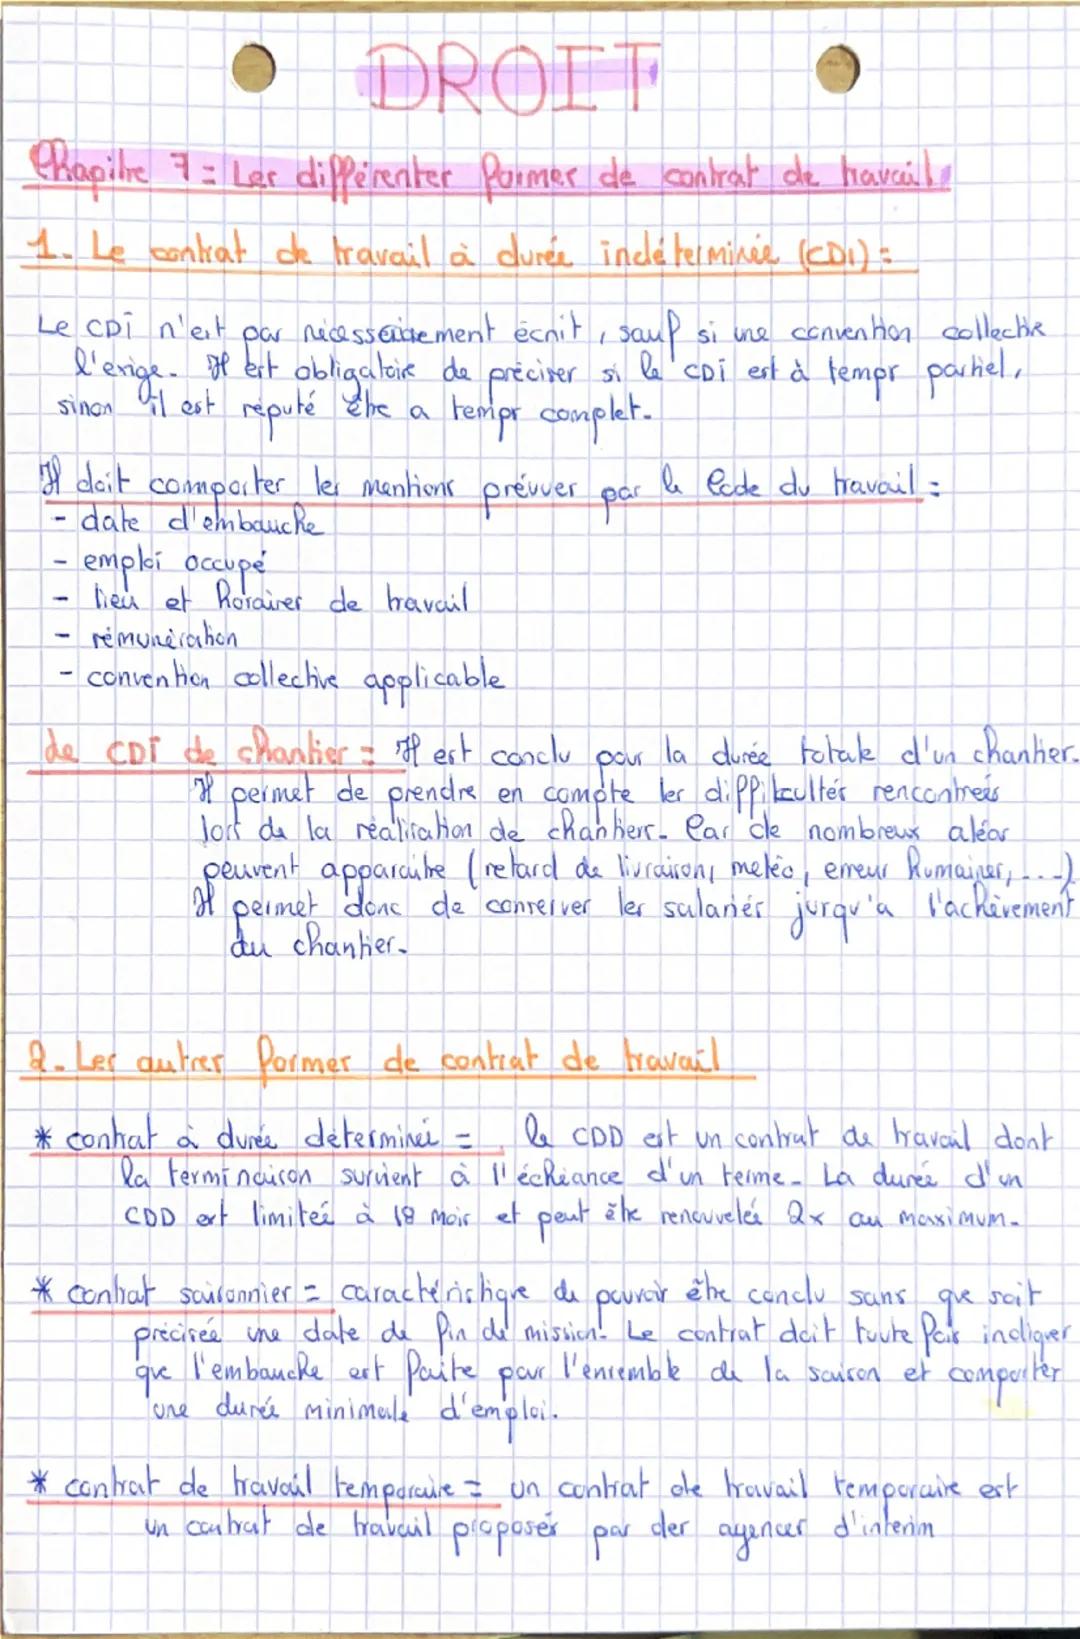 DROIT
Chapitre 7 = Les différentes formes de contrat de travail
1. Le contrat de travail à durée indéterminée (CDI) =
Le CDI n'est pas nécessairement écrit, sauf si une convention collective
l'exige. Il est obligatoire de préciser si le CDI est à temps partiel,
sinon il est réputé être a temps complet.
Il doit comporter les mentions prévues par le Code du travail =
- date d'embauche
- emploi occupé
- lieu et horaires de travail
- rémunération
- convention collective applicable
Le CDI de chantier = Il est conclu pour la durée totale d'un chantier.
Il permet de prendre en compte les difficultés rencontrées
lors de la réalisation de chantiers. Car de nombreux aléas
peuvent apparaître (retard de livraison, météo, erreur humaines, ...)
Il permet donc de conserver les salariés jusqu'a l'achèvement
du chantier.
2. Les autres formes de contrat de travail
* contrat à durée déterminée = le CDD est un contrat de travail dont
la terminaison survient à l'échéance d'un terme. La durée d'un
CDD est limitée à 18 mois et peut être renouvelée 2x au maximum.
* contrat saisonnier = caractéristique de pouvoir être conclu sans que soit
précisée une date de fin de mission. Le contrat doit toute fois indiquer
que l'embauche est faite pour l'ensemble de la saison et comporter
une durée minimale d'emploi.
* contrat de travail temporaire = un contrat de travail temporaire est
un contrat de travail proposés par des agences d'interim